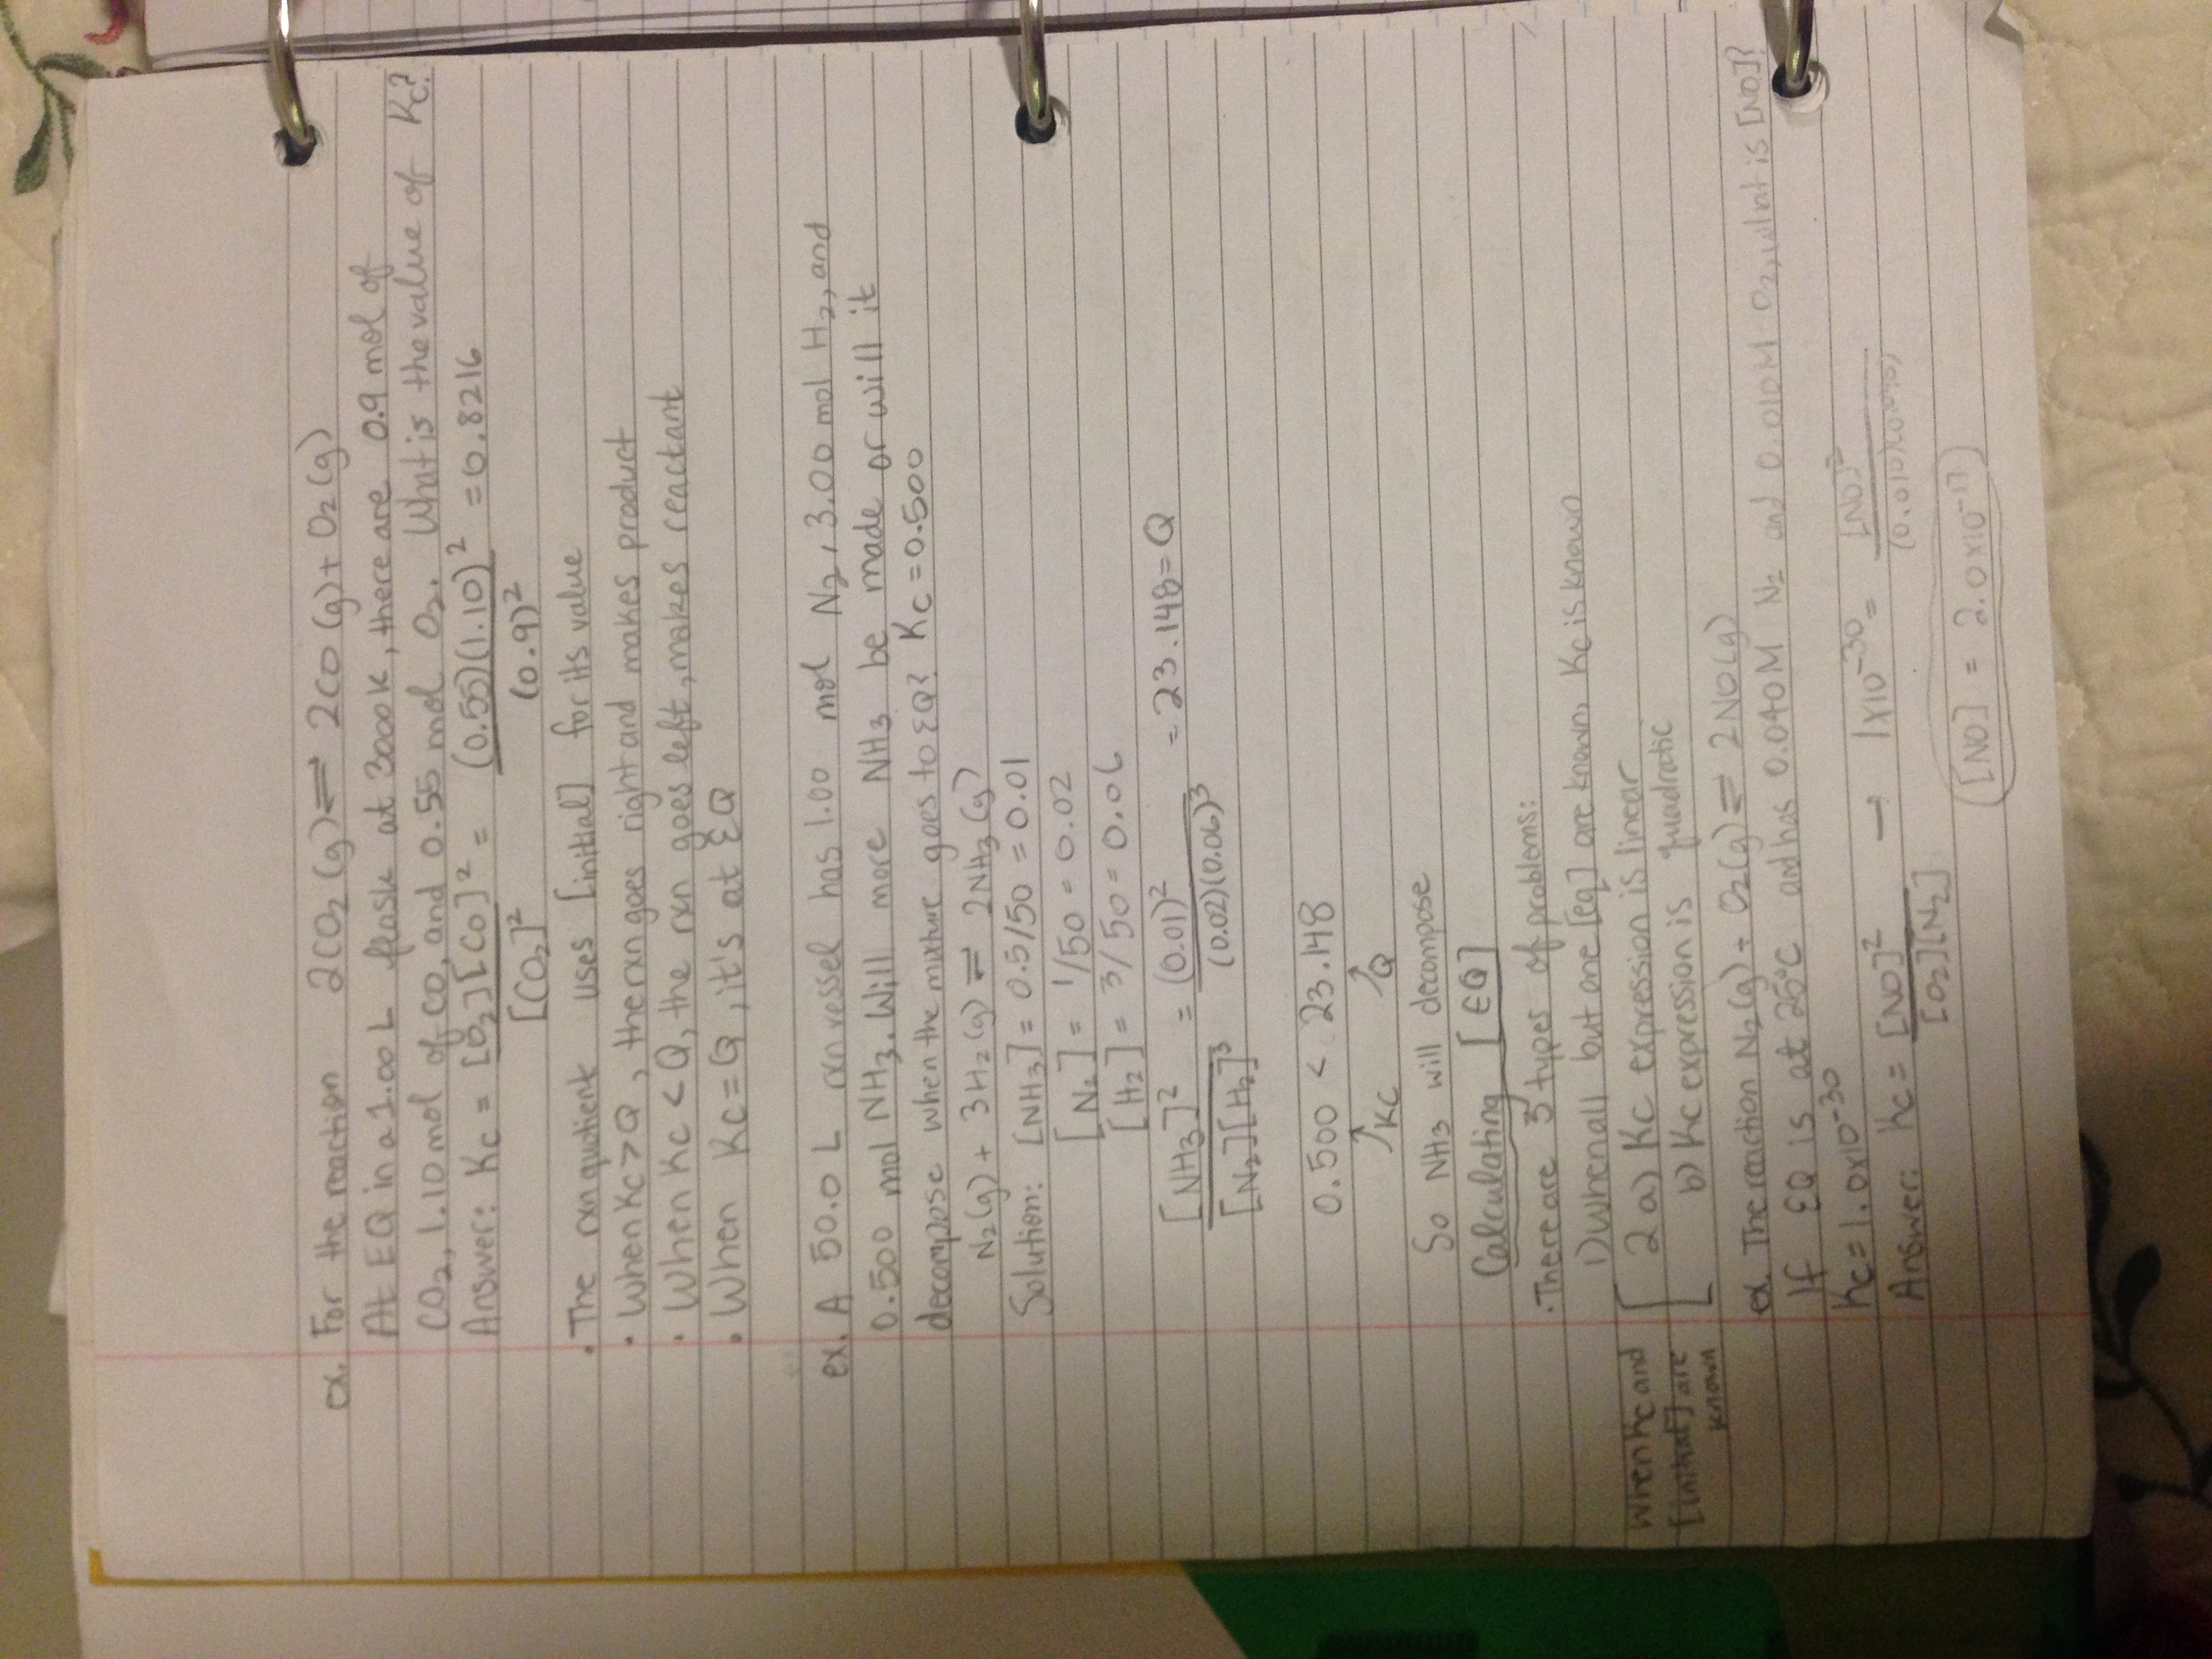 ex. For the reaction 2CO₂(g) ⇌ 2CO(g) + O₂(g)
At EQ in a 1.00 L flask at 3000K, there are 0.9 mol of
CO₂, 1.10 mol of CO, and 0.55 mol O₂. What is the value of Kc?
Answer: Kc = [O₂][CO]² / [CO₂]² = (0.55)(1.10)² / (0.9)² = 0.8216
• The rxn quotient uses [initial] for its value
• When Kc > Q, the rxn goes right and makes product
• When Kc < Q, the rxn goes left, makes reactant
• When Kc = Q, it's at EQ
ex. A 50.0 L rxn vessel has 1.00 mol N₂, 3.00 mol H₂, and
0.500 mol NH₃. Will more NH₃ be made or will it
decompose when the mixture goes to EQ? Kc = 0.500
N₂(g) + 3H₂(g) ⇌ 2NH₃(g)
Solution: [NH₃] = 0.5/50 = 0.01
[N₂] = 1/50 = 0.02
[H₂] = 3/50 = 0.06
[NH₃]² / [N₂][H₂]³ = (0.01)² / (0.02)(0.06)³ = 23.148 = Q
0.500 < 23.148
↑ Kc ↑ Q
So NH₃ will decompose
Calculating [EQ]
• There are 3 types of problems:
1) When all but one [eq] are known, Kc is known
When Kc and [initial] are known [ 2 a) Kc expression is linear
b) Kc expression is quadratic
ex. The reaction N₂(g) + O₂(g) ⇌ 2NO(g)
If EQ is at 25°C and has 0.040M N₂ and 0.010M O₂, what is [NO]?
Kc = 1.0x10⁻³⁰
Answer: Kc = [NO]² / [O₂][N₂] → 1x10⁻³⁰ = [NO]² / (0.010)(0.040)
[NO] = 2.0x10⁻¹⁷